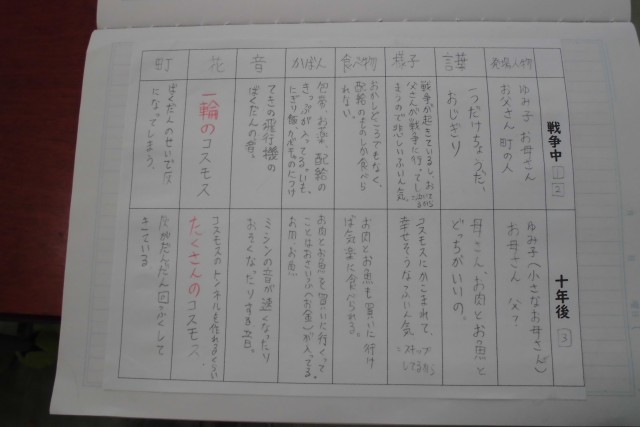 戦争中 1 2
十年後 3
登場人物
ゆみ子 お母さん
お父さん 町の人
ゆみ子(小さなお母さん)
お母さん 父?
言葉
一つだけちょうだい、
おじぎり
母さん、お肉とお魚と
どっちがいいの。
様子
戦争が起きているし、
父さんが戦争に行って
まうので悲しいふんい気。
コスモスにかこまれて、
幸せそうなふんい気
食べ物
おかしどころでもなく、
配給のものしか食べら
れない。
お肉とお魚も買いに行け
ば気楽に食べられる。
かばん
包帯、お薬、配給の
きっぷが入ってる。いも、
お肉とお魚を買いに行くって
ことはおさいふ(お金)が入ってる。
お肉、お魚
音
てきの飛行機の
ばくだんの音。
ミシンの音が速くなったり
おそくなったりする音。
花
一輪のコスモス
たくさんのコスモス、
コスモスのトンネルも作れるくらい
町
ばくだんのせいで灰
になってしまう。
きている